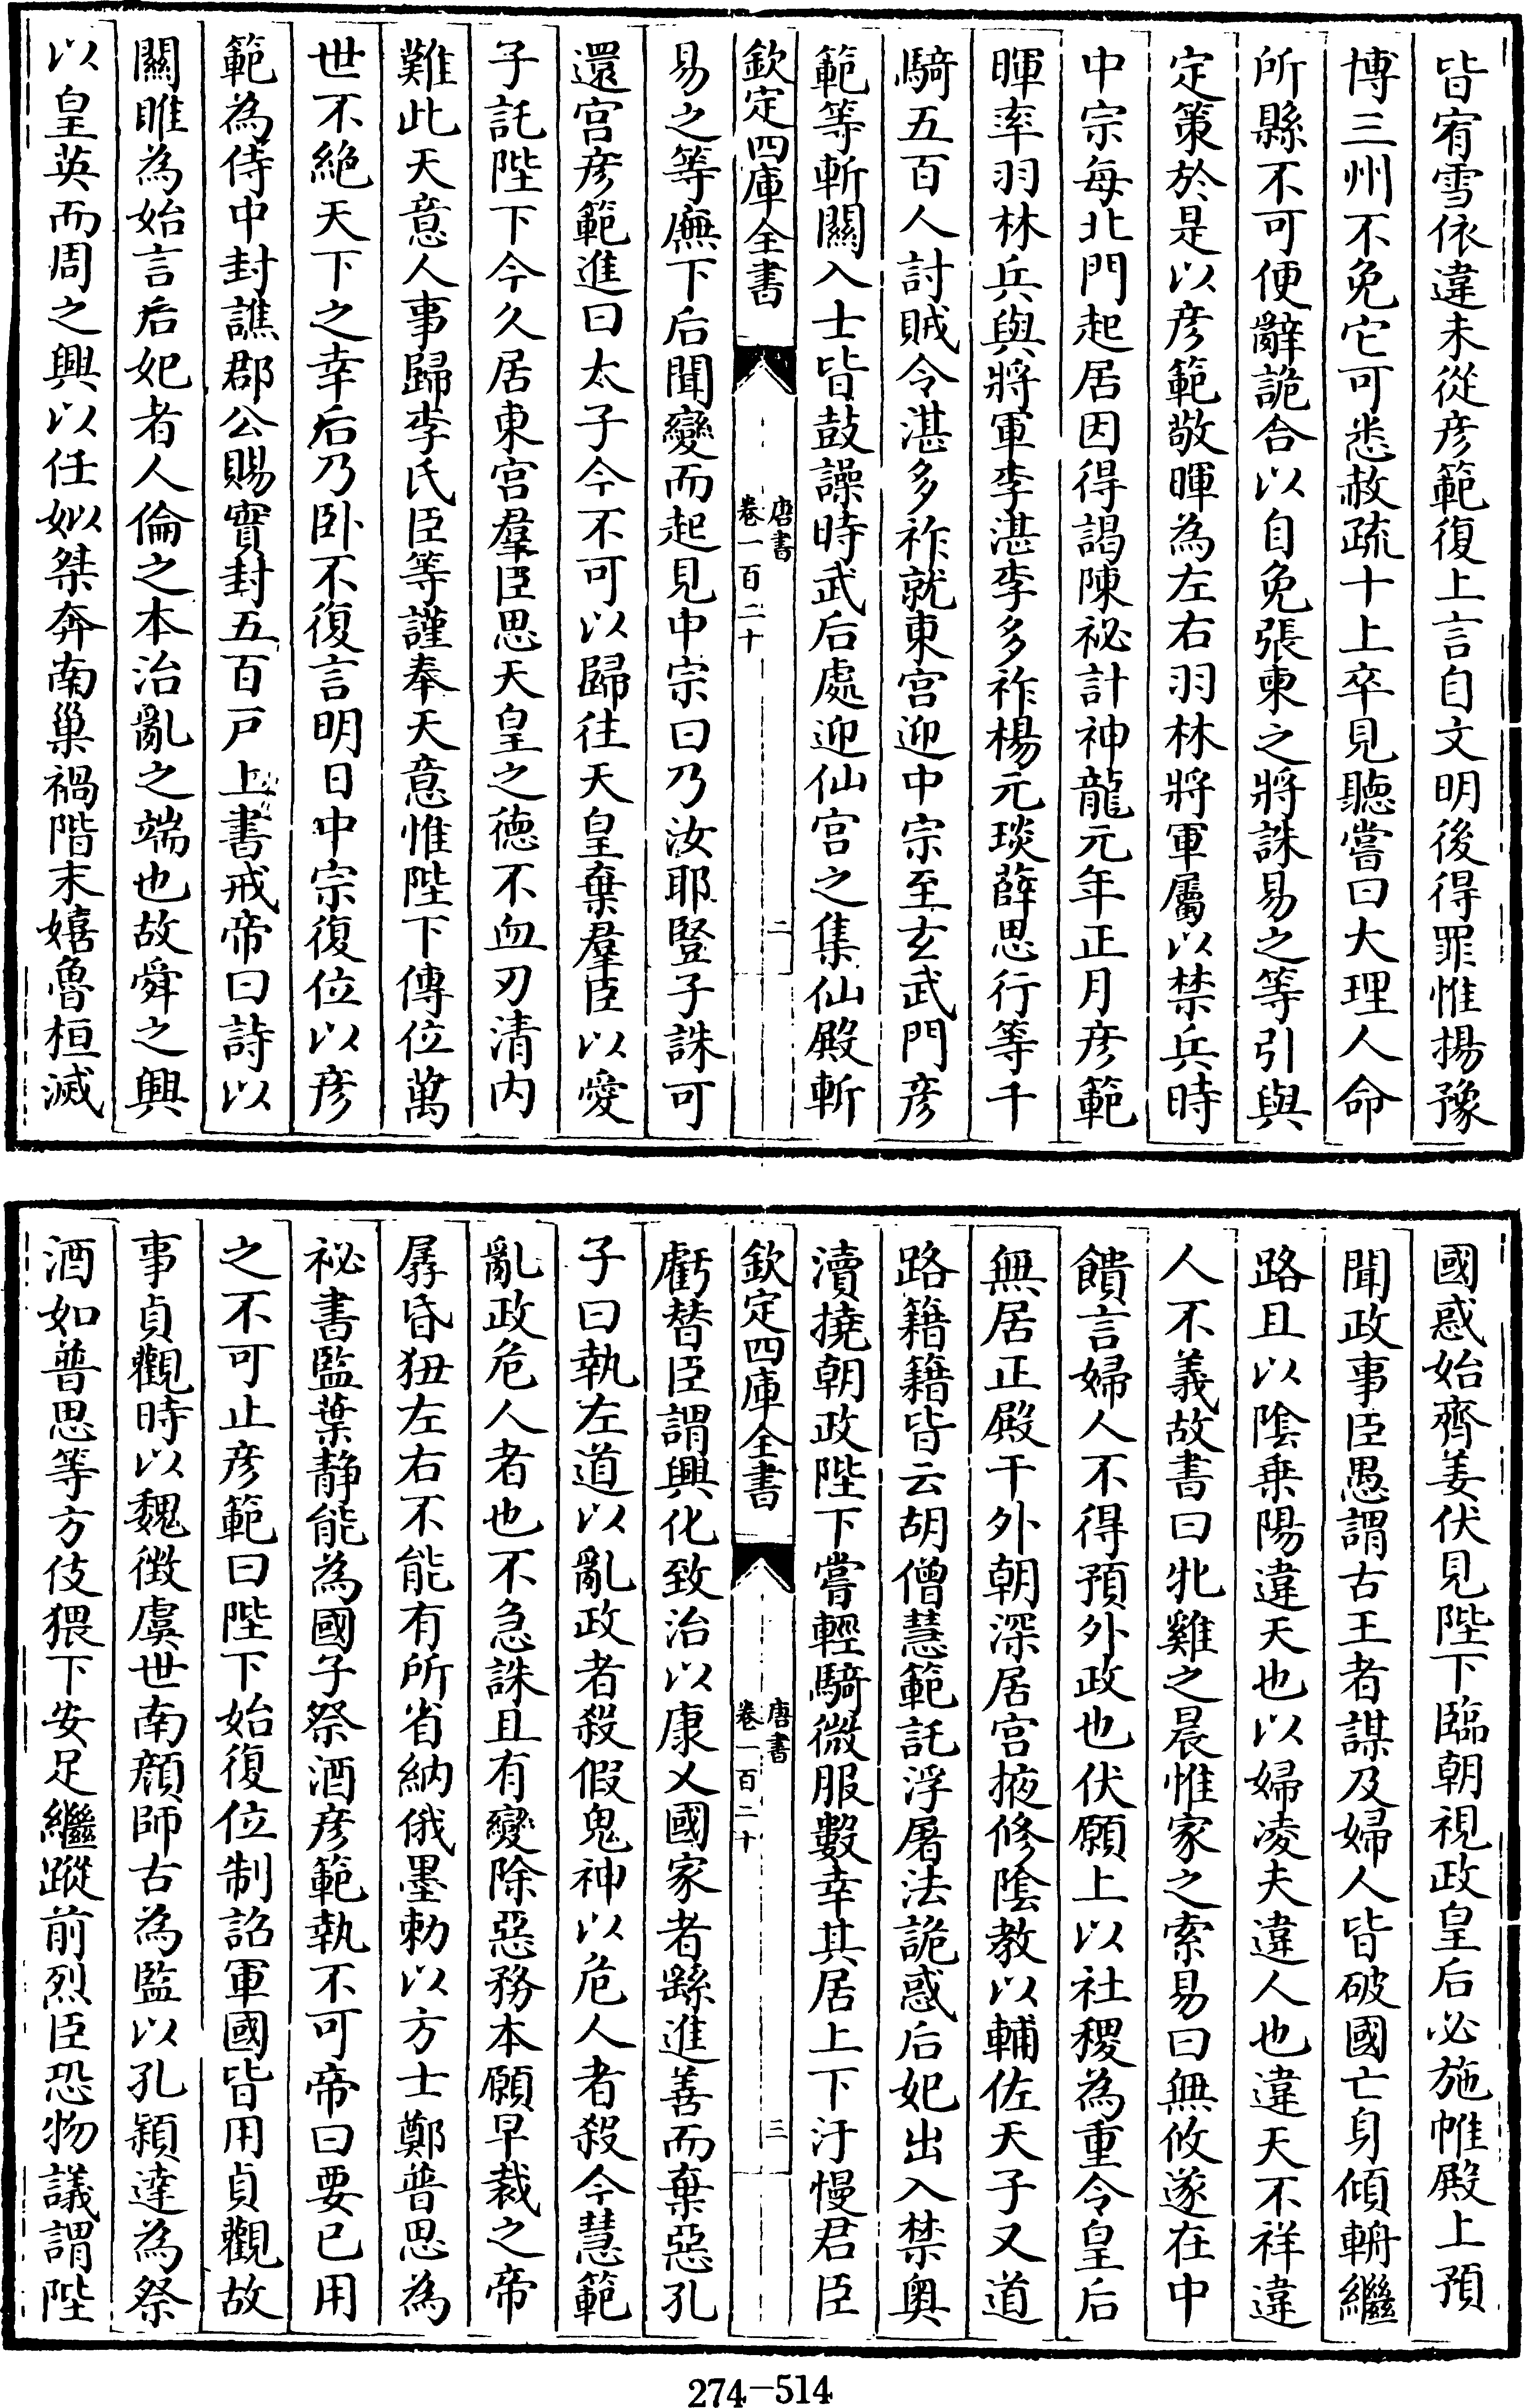 皆宥雪依違未從彦範復上言自文明後得罪惟揚豫
博三州不免它可悉赦疏十上卒見聽嘗曰大理人命
所縣不可便辭詭合以自免張柬之將誅易之等引與
定策於是以彦範敬暉為左右羽林將軍屬以禁兵時
中宗每北門起居因得謁陳祕計神龍元年正月彦範
暉率羽林兵與將軍李湛李多祚楊元琰薛思行等千
騎五百人討賊令湛多祚就東宫迎中宗至玄武門彦
範等斬關入士皆鼓譟時武后處迎仙宫之集仙殿斬
欽定四庫全書
唐書
卷一百二十
二
易之等廡下后聞變而起見中宗曰乃汝耶豎子誅可
還宫彦範進曰太子今不可以歸往天皇棄羣臣以愛
子託陛下今久居東宫羣臣思天皇之德不血刃清内
難此天意人事歸李氏臣等謹奉天意惟陛下傳位萬
世不絶天下之幸后乃卧不復言明日中宗復位以彦
範為侍中封譙郡公賜實封五百戸上書戒帝曰詩以
關雎為始言后妃者人倫之本治亂之端也故舜之興
以皇英而周之興以任姒桀奔南巢禍階末嬉魯桓滅
國惑始齊姜伏見陛下臨朝視政皇后必施帷殿上預
聞政事臣愚謂古王者謀及婦人皆破國亡身傾輈繼
路且以陰乗陽違天也以婦凌夫違人也違天不祥違
人不義故書曰牝雞之晨惟家之索易曰無攸遂在中
饋言婦人不得預外政也伏願上以社稷為重令皇后
無居正殿干外朝深居宫掖修陰教以輔佐天子又道
路籍籍皆云胡僧慧範託浮屠法詭惑后妃出入禁奥
瀆撓朝政陛下嘗輕騎微服數幸其居上下汙慢君臣
欽定四庫全書
唐書
卷一百二十
三
虧替臣謂興化致治以康乂國家者繇進善而棄惡孔
子曰執左道以亂政者殺假鬼神以危人者殺今慧範
亂政危人者也不急誅且有變除惡務本願早裁之帝
孱昏狃左右不能有所省納俄墨勅以方士鄭普思為
祕書監葉靜能為國子祭酒彦範執不可帝曰要已用
之不可止彦範曰陛下始復位制詔軍國皆用貞觀故
事貞觀時以魏徴虞世南顔師古為監以孔穎達為祭
酒如普思等方伎猥下安足繼蹤前烈臣恐物議謂陛
274-514